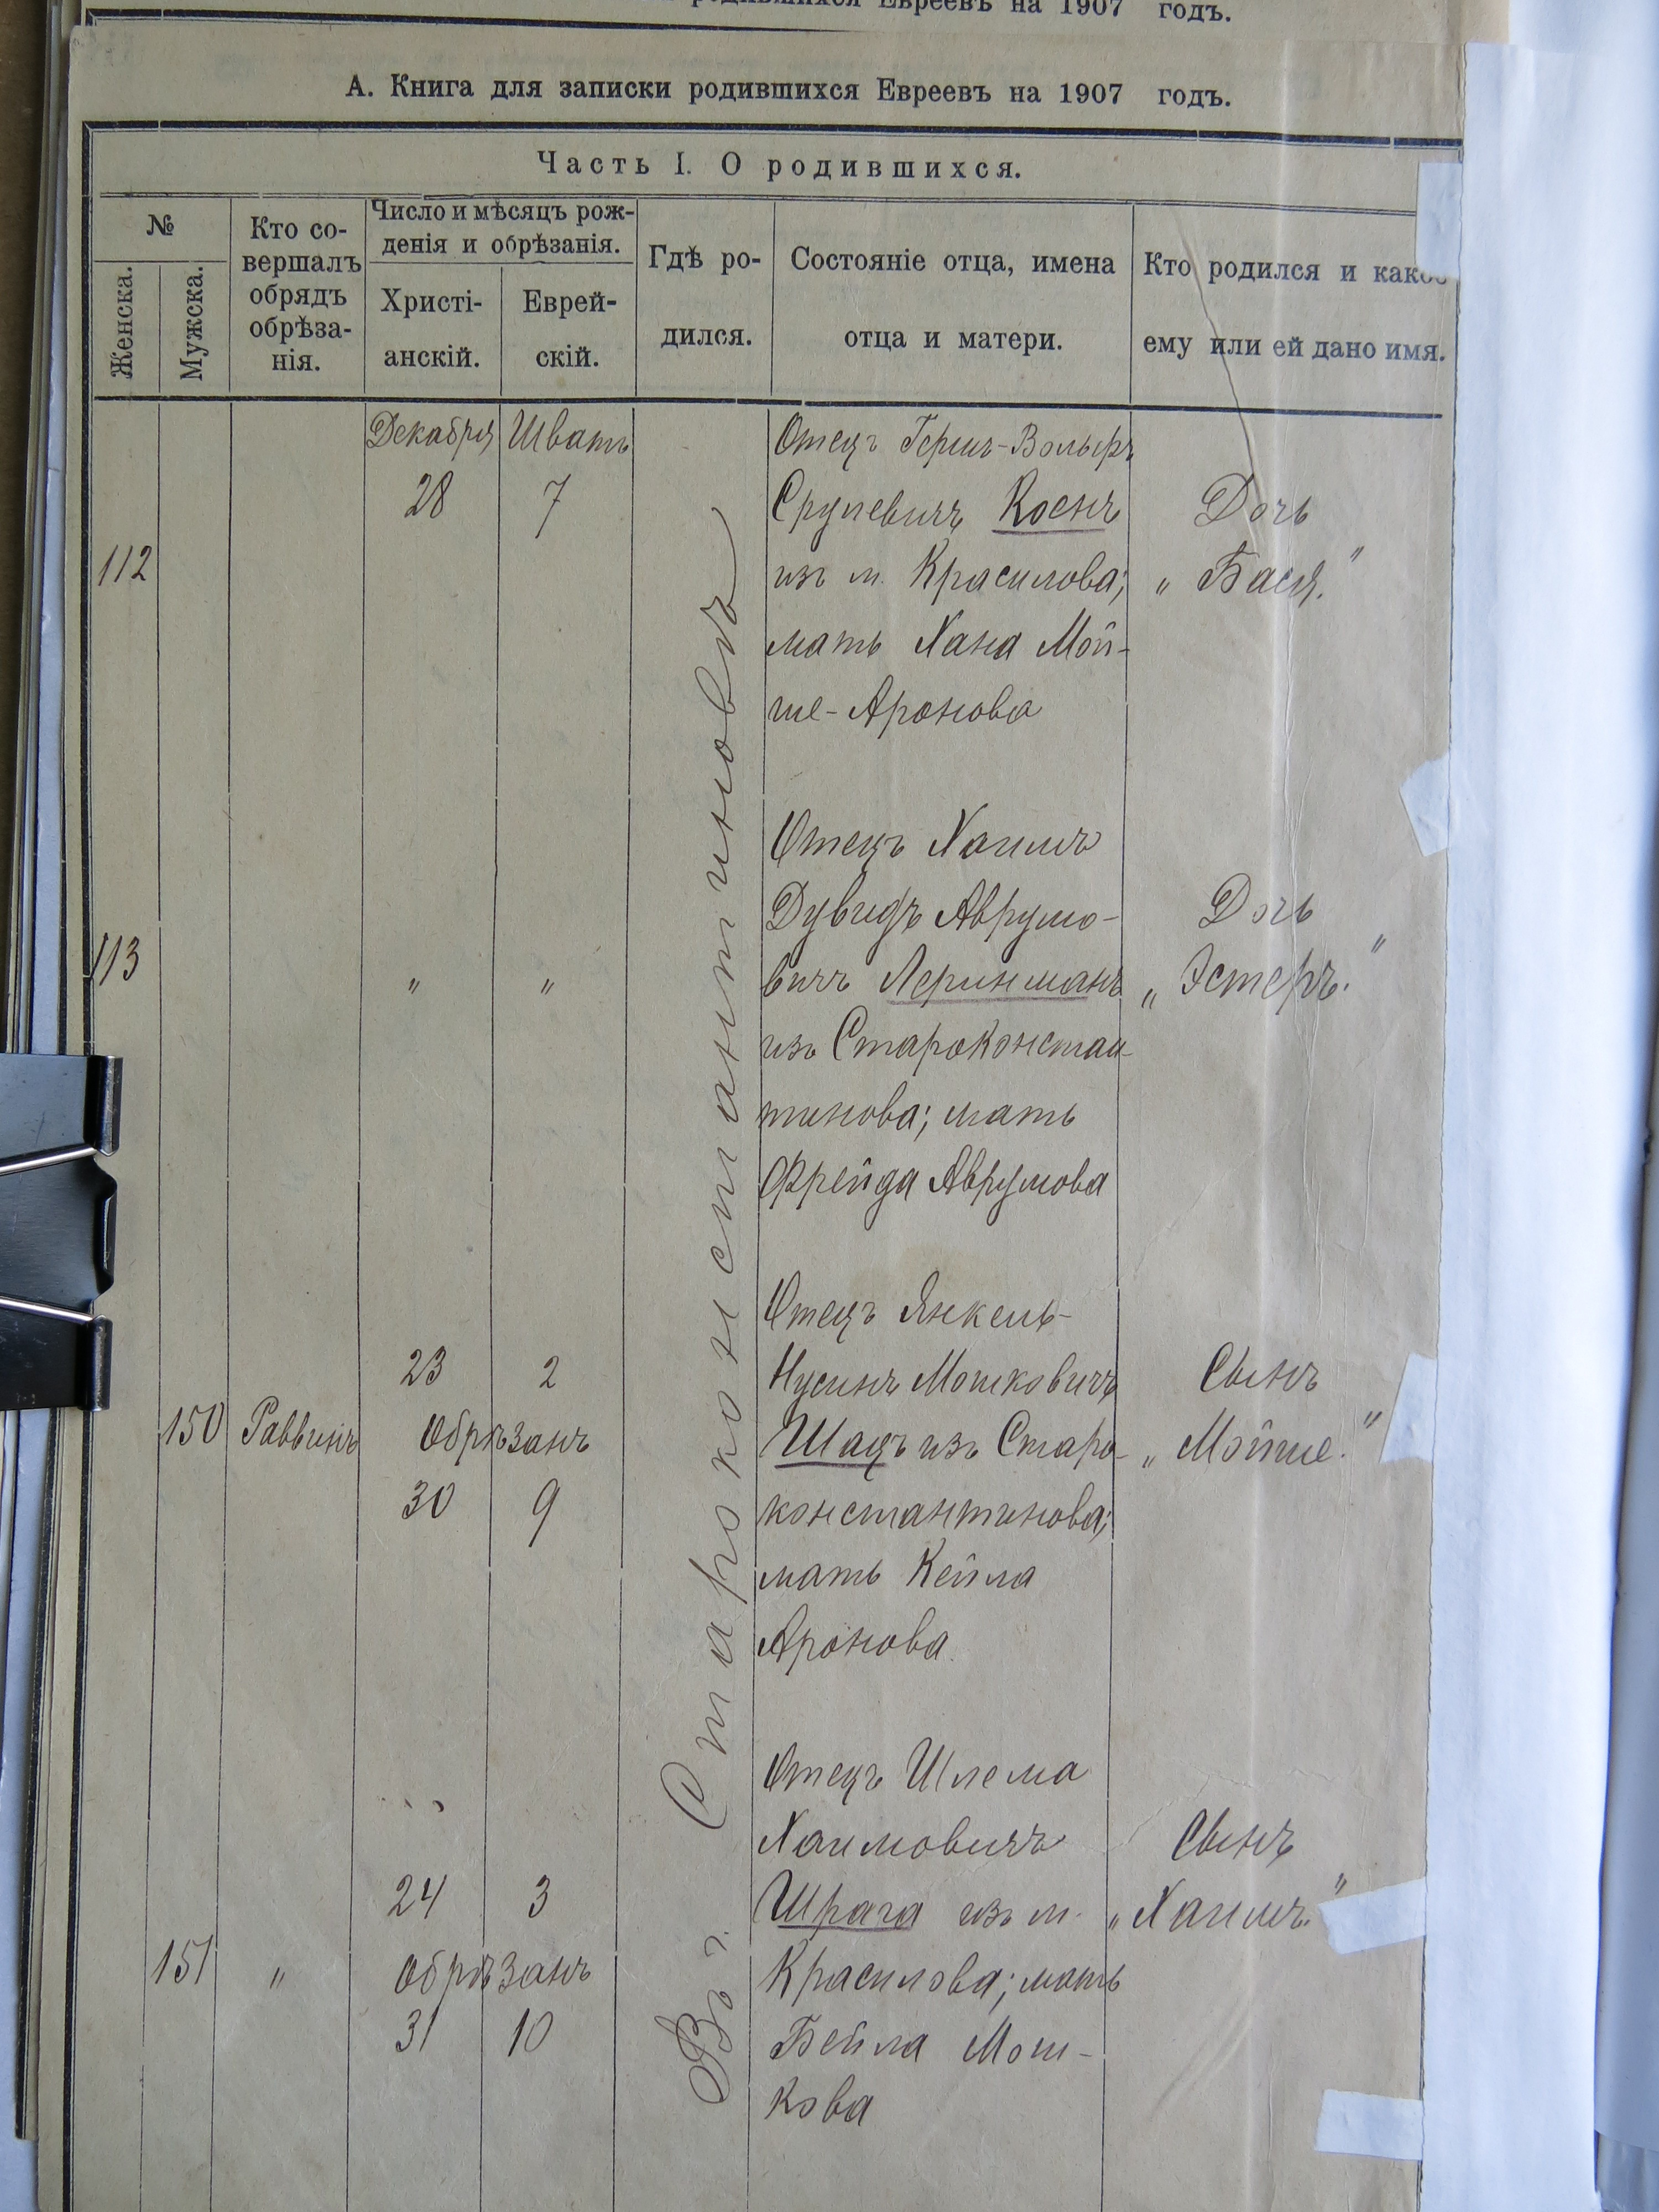 родившихся Евреевъ на 1907 годъ.
А. Книга для записки родившихся Евреевъ на 1907 годъ.
Часть I. О родившихся.
№
Женска.
Мужска.
Кто со-
вершалъ
обрядъ
обрѣза-
нія.
Число и мѣсяцъ рож-
денія и обрѣзанія.
Христі-
анскій.
Еврей-
скій.
Гдѣ ро-
дился.
Состояніе отца, имена
отца и матери.
Кто родился и какое
ему или ей дано имя.
Въ г. Староконстантиновѣ
112
Декабря Шватъ
28 7
Отецъ Гершъ-Вольфъ
Срулевичъ Коенъ
изъ м. Красилова;
мать Хана Мой-
ше-Аронова
Дочь
„Бася."
113
" "
Отецъ Хаимъ
Дувидъ Аврумо-
вичъ Леринманъ
изъ Староконстан-
тинова; мать
Фрейда Аврумова
Дочь
„Эстеръ."
150 Раввинъ
23 2
Обрѣзанъ
30 9
Отецъ Янкель-
Нусинъ Мошковичъ
Шацъ изъ Старо-
константинова;
мать Кейла
Аронова.
Сынъ
„Мойше."
151 "
24 3
Обрѣзанъ
31 10
Отецъ Шлема
Хаимовичъ
Шрага изъ м.
Красилова; мать
Бейла Мош-
кова
Сынъ
„Хаимъ."